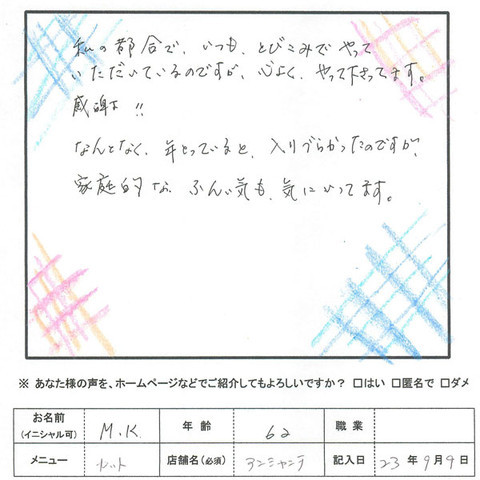 私の都合で、いつも、とびこみでやって
いただいているのですが、心よく、やって下さってます。
感謝!!
なんとなく、年とっていると、入りづらかったのですが、
家庭的な、ふんい気も、気にいってます。
※ あなた様の声を、ホームページなどでご紹介してもよろしいですか? □はい □匿名で □ダメ
お名前 (イニシャル可) M.K. 年齢 62 職業
メニュー カット 店舗名(必須) アンシャンテ 記入日 23年9月9日